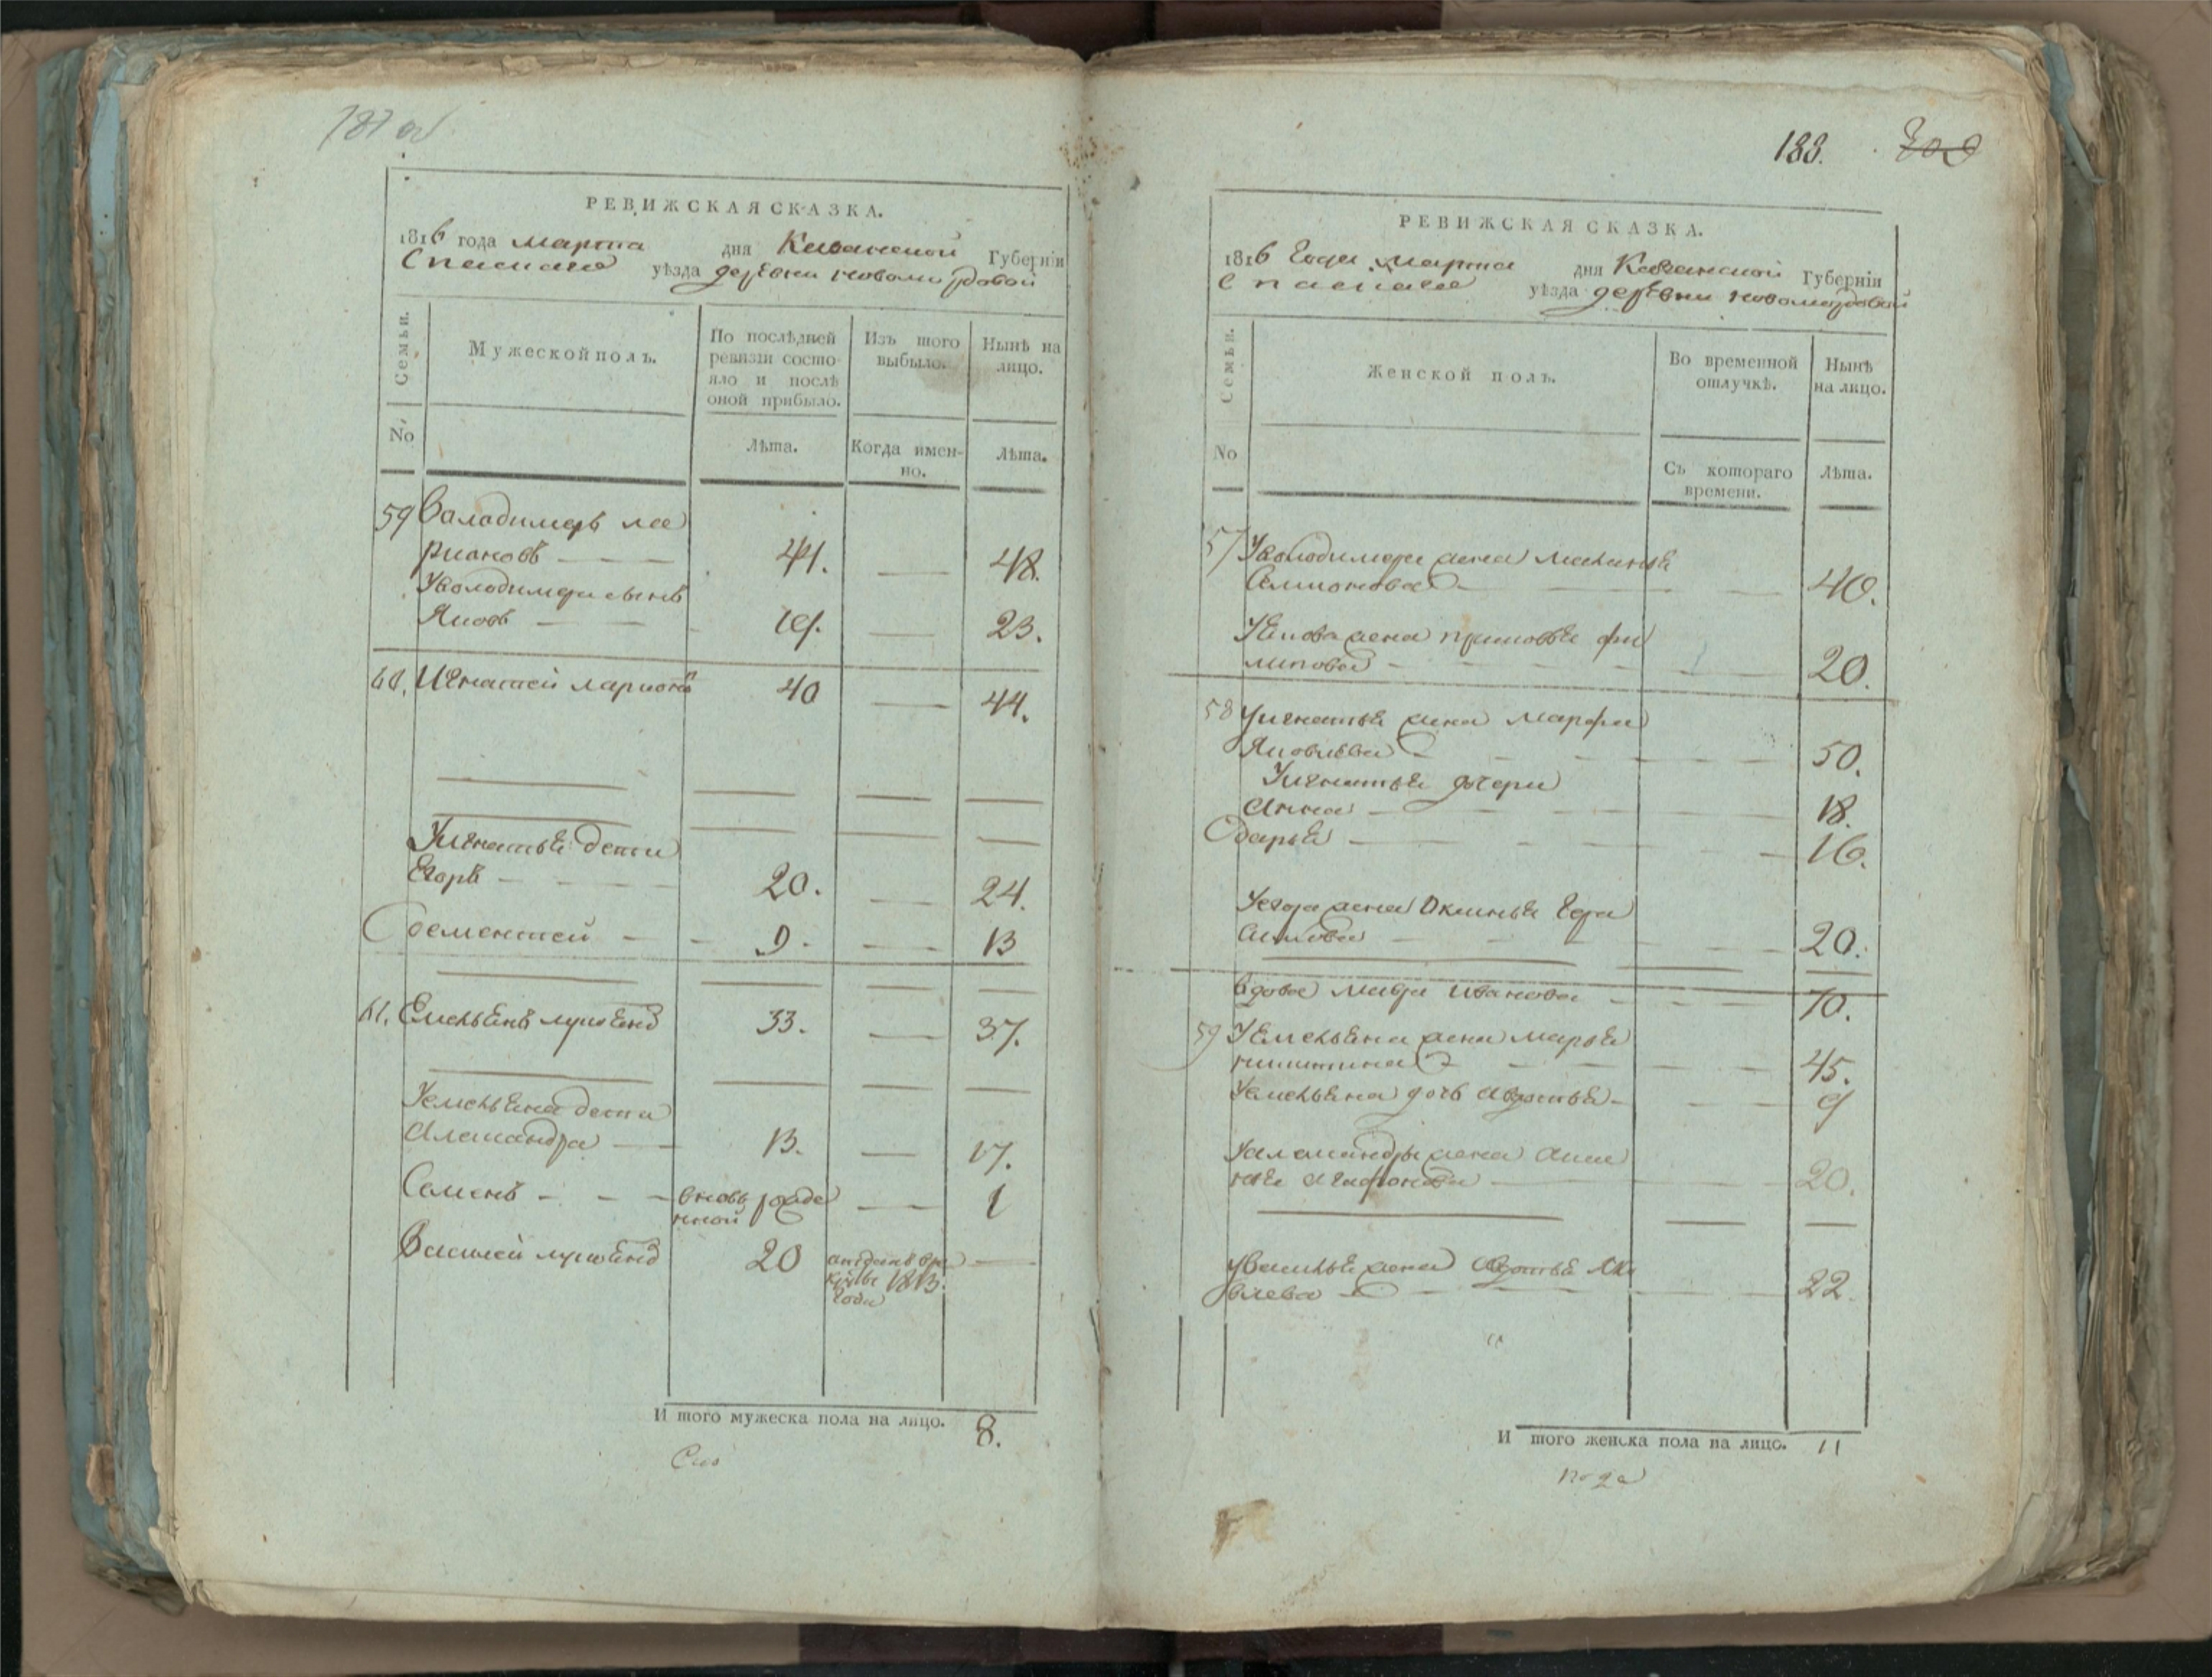 187 об
РЕВИЖСКАЯ СКАЗКА.
1816 года марта дня Казанской Губернїи
Спаскаго уѣзда деревни новомордовой
Семьи.
Мужеской полъ.
По послѣдней ревизїи состояло и послѣ оной прибыло.
Изъ того выбыло.
Нынѣ на лицо.
No
Лѣта.
Когда именно.
Лѣта.
59 Валадимеръ ла
рионовъ — 44. — 48.
Уволодимера сынъ
Яковъ — 19. — 23.
60. Игнатей ларионовъ 40 — 44.
Уигнатья дети
Егоръ — 20. — 24.
дементей — 9. — 13
61. Емельянъ 33. — 37.
Уемельяна дети
Александра — 13. — 17.
Семенъ — вновь рожде
нной — 1
Василей 20 отданъ в ре
круты 1813.
года —
И того мужеска пола на лицо. 8.
188.
РЕВИЖСКАЯ СКАЗКА.
1816 Года марта дня Казанской Губернїи
Спаскаго уѣзда деревни новомордовой
Семьи.
Женской полъ.
Во временной отлучкѣ.
Нынѣ на лицо.
No
Съ котораго времени.
Лѣта.
57 Уволодимера жена маланья
Семионова — 40.
Уякова жена прасковья фи
липова — 20.
58 Уигнатья жена марфа
Яковлева — 50.
Уигнатья дочери
Анна — 18.
дарья — 16.
Уегора жена Оксинья Гера
симова — 20.
вдова мавра Иванова — 70.
59 Уемельяна жена марья
никитина — 45.
Уемельяна дочь авдотья — 9
Уалександры жена
20.
Увасилья жена авдотья Яко
влева — 22.
И того женска пола на лицо. 11